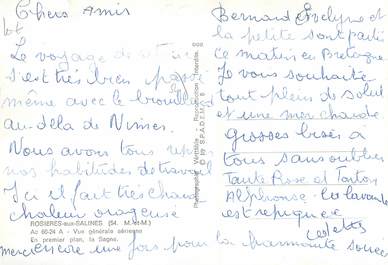 Chers Amis
Le voyage
s'est très bien passé
même avec le brouillard
au-delà de Nîmes.
Nous avons tous repris
nos habitudes de travail
Ici il fait très chaud
chaleur orageuse
ROSIERES-aux-SALINES (54. M.-et-M.)
Ac 66-24 A - Vue générale aérienne
En premier plan, la Sagne.
merci encore une fois pour la charmante soirée
Bernard Evelyne et
la petite sont partis
ce matin en Bretagne
Je vous souhaite
tout plein de soleil
et une mer chaude
grosses bises à
tous sans oublier
Tante Rose et Tonton
Alphonse. la lavande
est repiquée
Reproduction interdite.
© by SPADEM